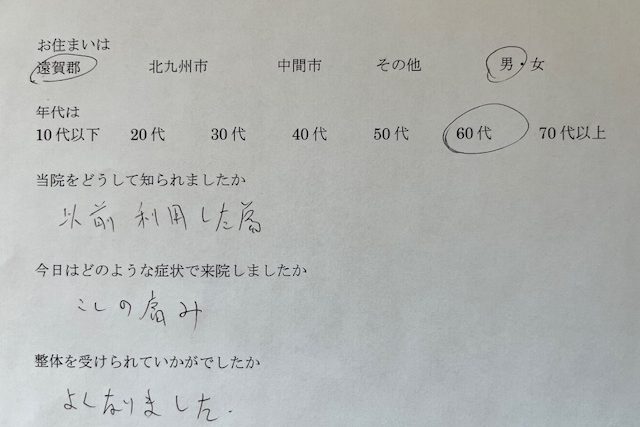 お住まいは
遠賀郡 北九州市 中間市 その他 男・女
年代は
10代以下 20代 30代 40代 50代 60代 70代以上
当院をどうして知られましたか
以前利用した為
今日はどのような症状で来院しましたか
こしの痛み
整体を受けられていかがでしたか
よくなりました.